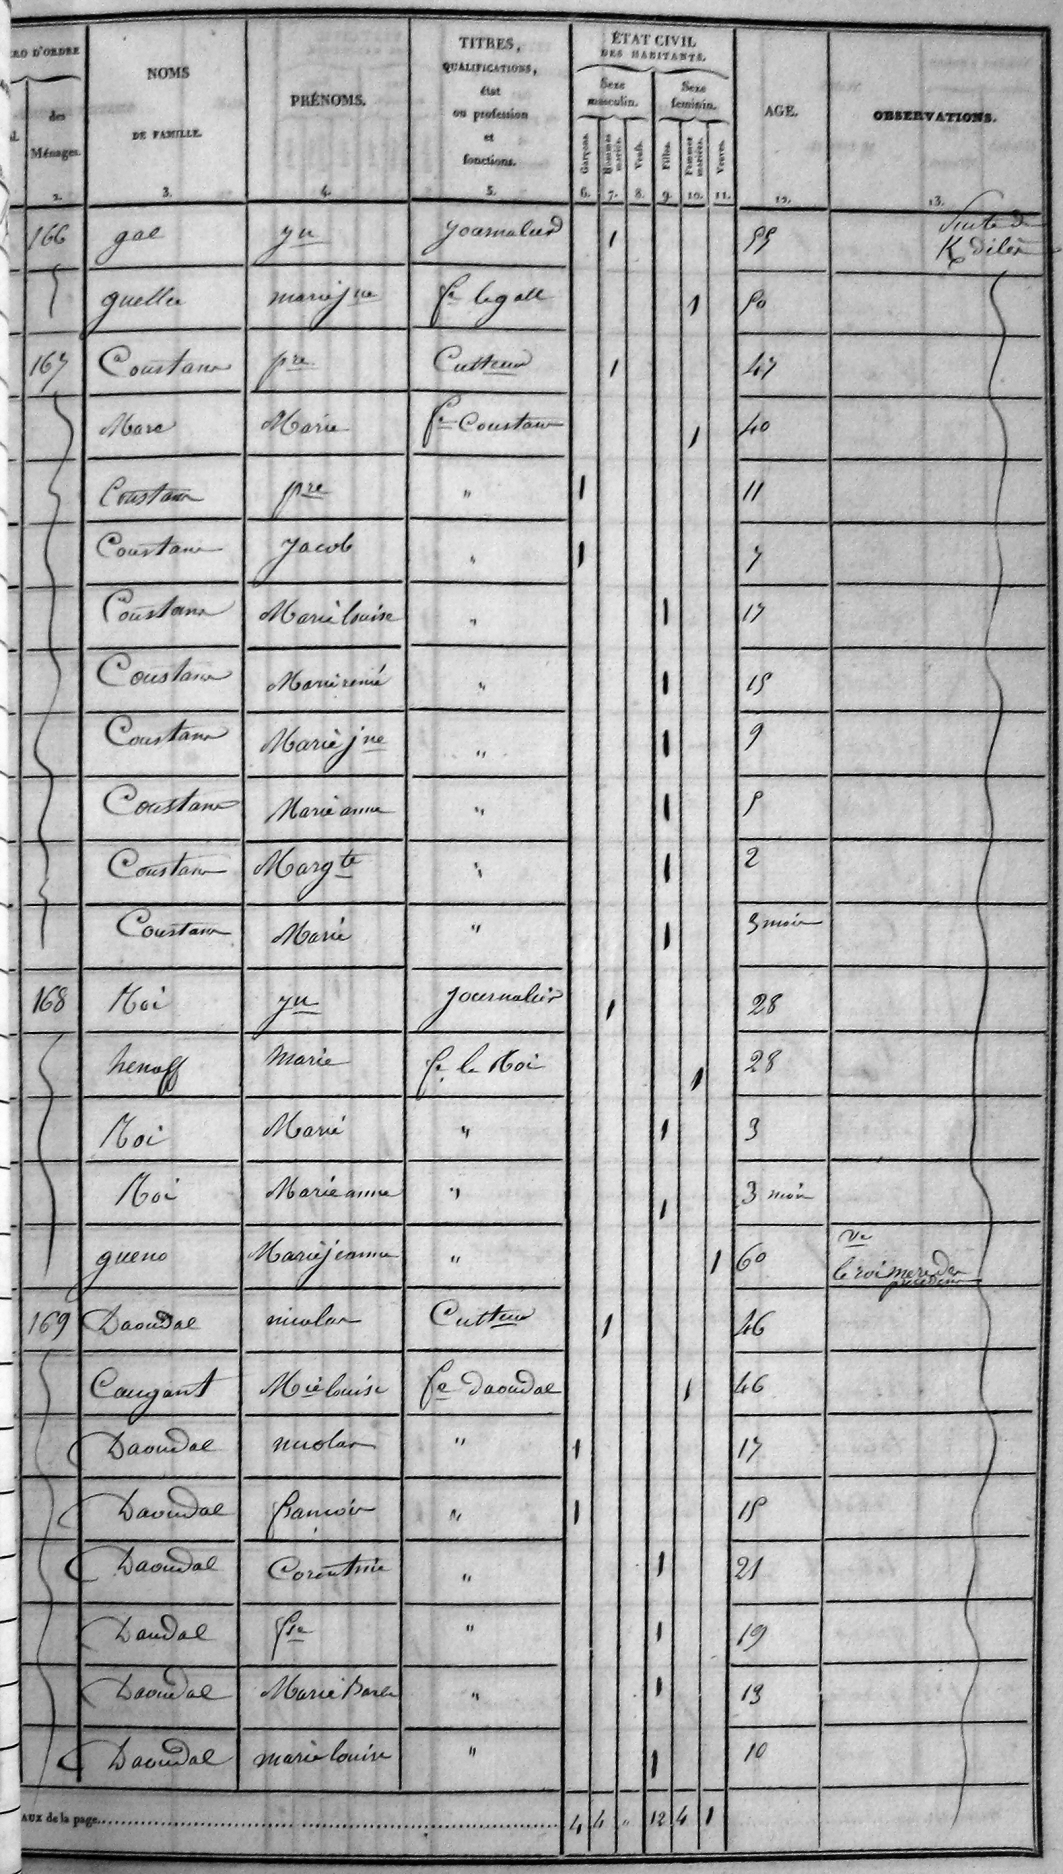 RO D'ORDRE
des
Ménages.
2.
NOMS
DE FAMILLE.
3.
PRÉNOMS.
4.
TITRES,
QUALIFICATIONS,
état
ou profession
et
fonctions.
5.
ÉTAT CIVIL
DES HABITANTS.
Sexe masculin. Sexe féminin.
Garçons. Hommes mariés. Veufs. Filles. Femmes mariées. Veuves.
6. 7. 8. 9. 10. 11.
AGE.
12.
OBSERVATIONS.
13.
Suite de
166 gal yn journalier 1 55
guellec marie jne fe legall 1 50
167 Coustans pre Cultteur 1 47
Marc Marie fe Coustans 1 40
Coustans pre " 1 11
Coustans Jacob " 1 7
Coustans Marie louise " 1 17
Coustans Marie renée " 1 15
Coustans Marie jne " 1 9
Coustans Marie anne " 1 5
Coustans Margte " 1 2
Coustans Marie " 1 3 mois
168 Roi yn journalier 1 28
henaff Marie fe le Roi 1 28
Roi Marie " 1 3
Roi Marie anne " 1 3 mois
gueno Marie jeanne " 1 60 ve
le roi mere du
169 Daoudal nicolas Cultteur 1 46
Caugant Mie louise fe daoudal 1 46
Daoudal nicolas " 1 17
Daoudal françois " 1 15
Daoudal Corentine " 1 21
Daudal fse " 1 19
Daoudal Marie Barbe " 1 13
Daoudal marie louise " 1 10
AUX de la page 4 4 " 12 4 1